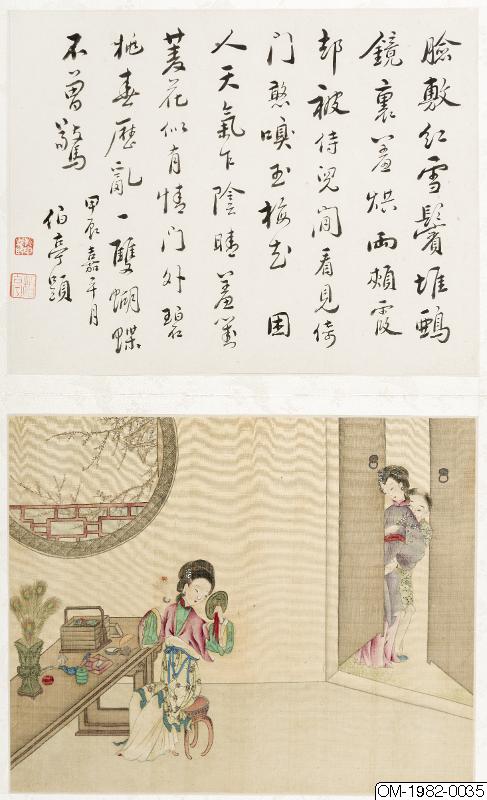 臉敷紅雪鬢堆鴉
鏡裏羞烘兩頰霞
却被侍兒閒看見倚
門憨嗅玉梅花 困
人天氣乍陰晴羞對
菱花似有情門外碧
桃春歷亂一雙蝴蝶
不曾驚
甲辰嘉平月
伯亭題
OM-1982-0035